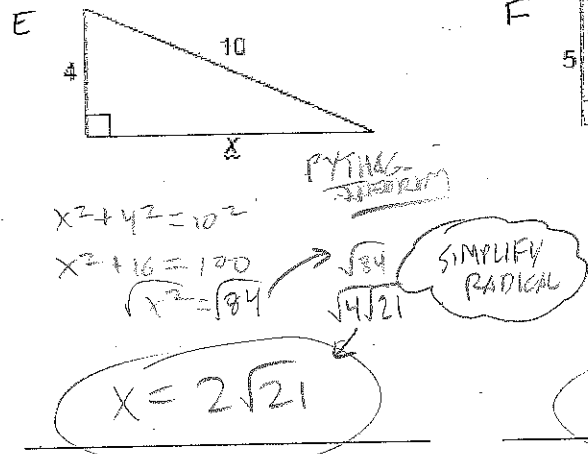 E
F
4
10
5
x
PYTHAG-
THEORUM
x² + 4² = 10²
x² + 16 = 100
√x² = √84
√84
√4√21
SIMPLIFY
RADICAL
x = 2√21